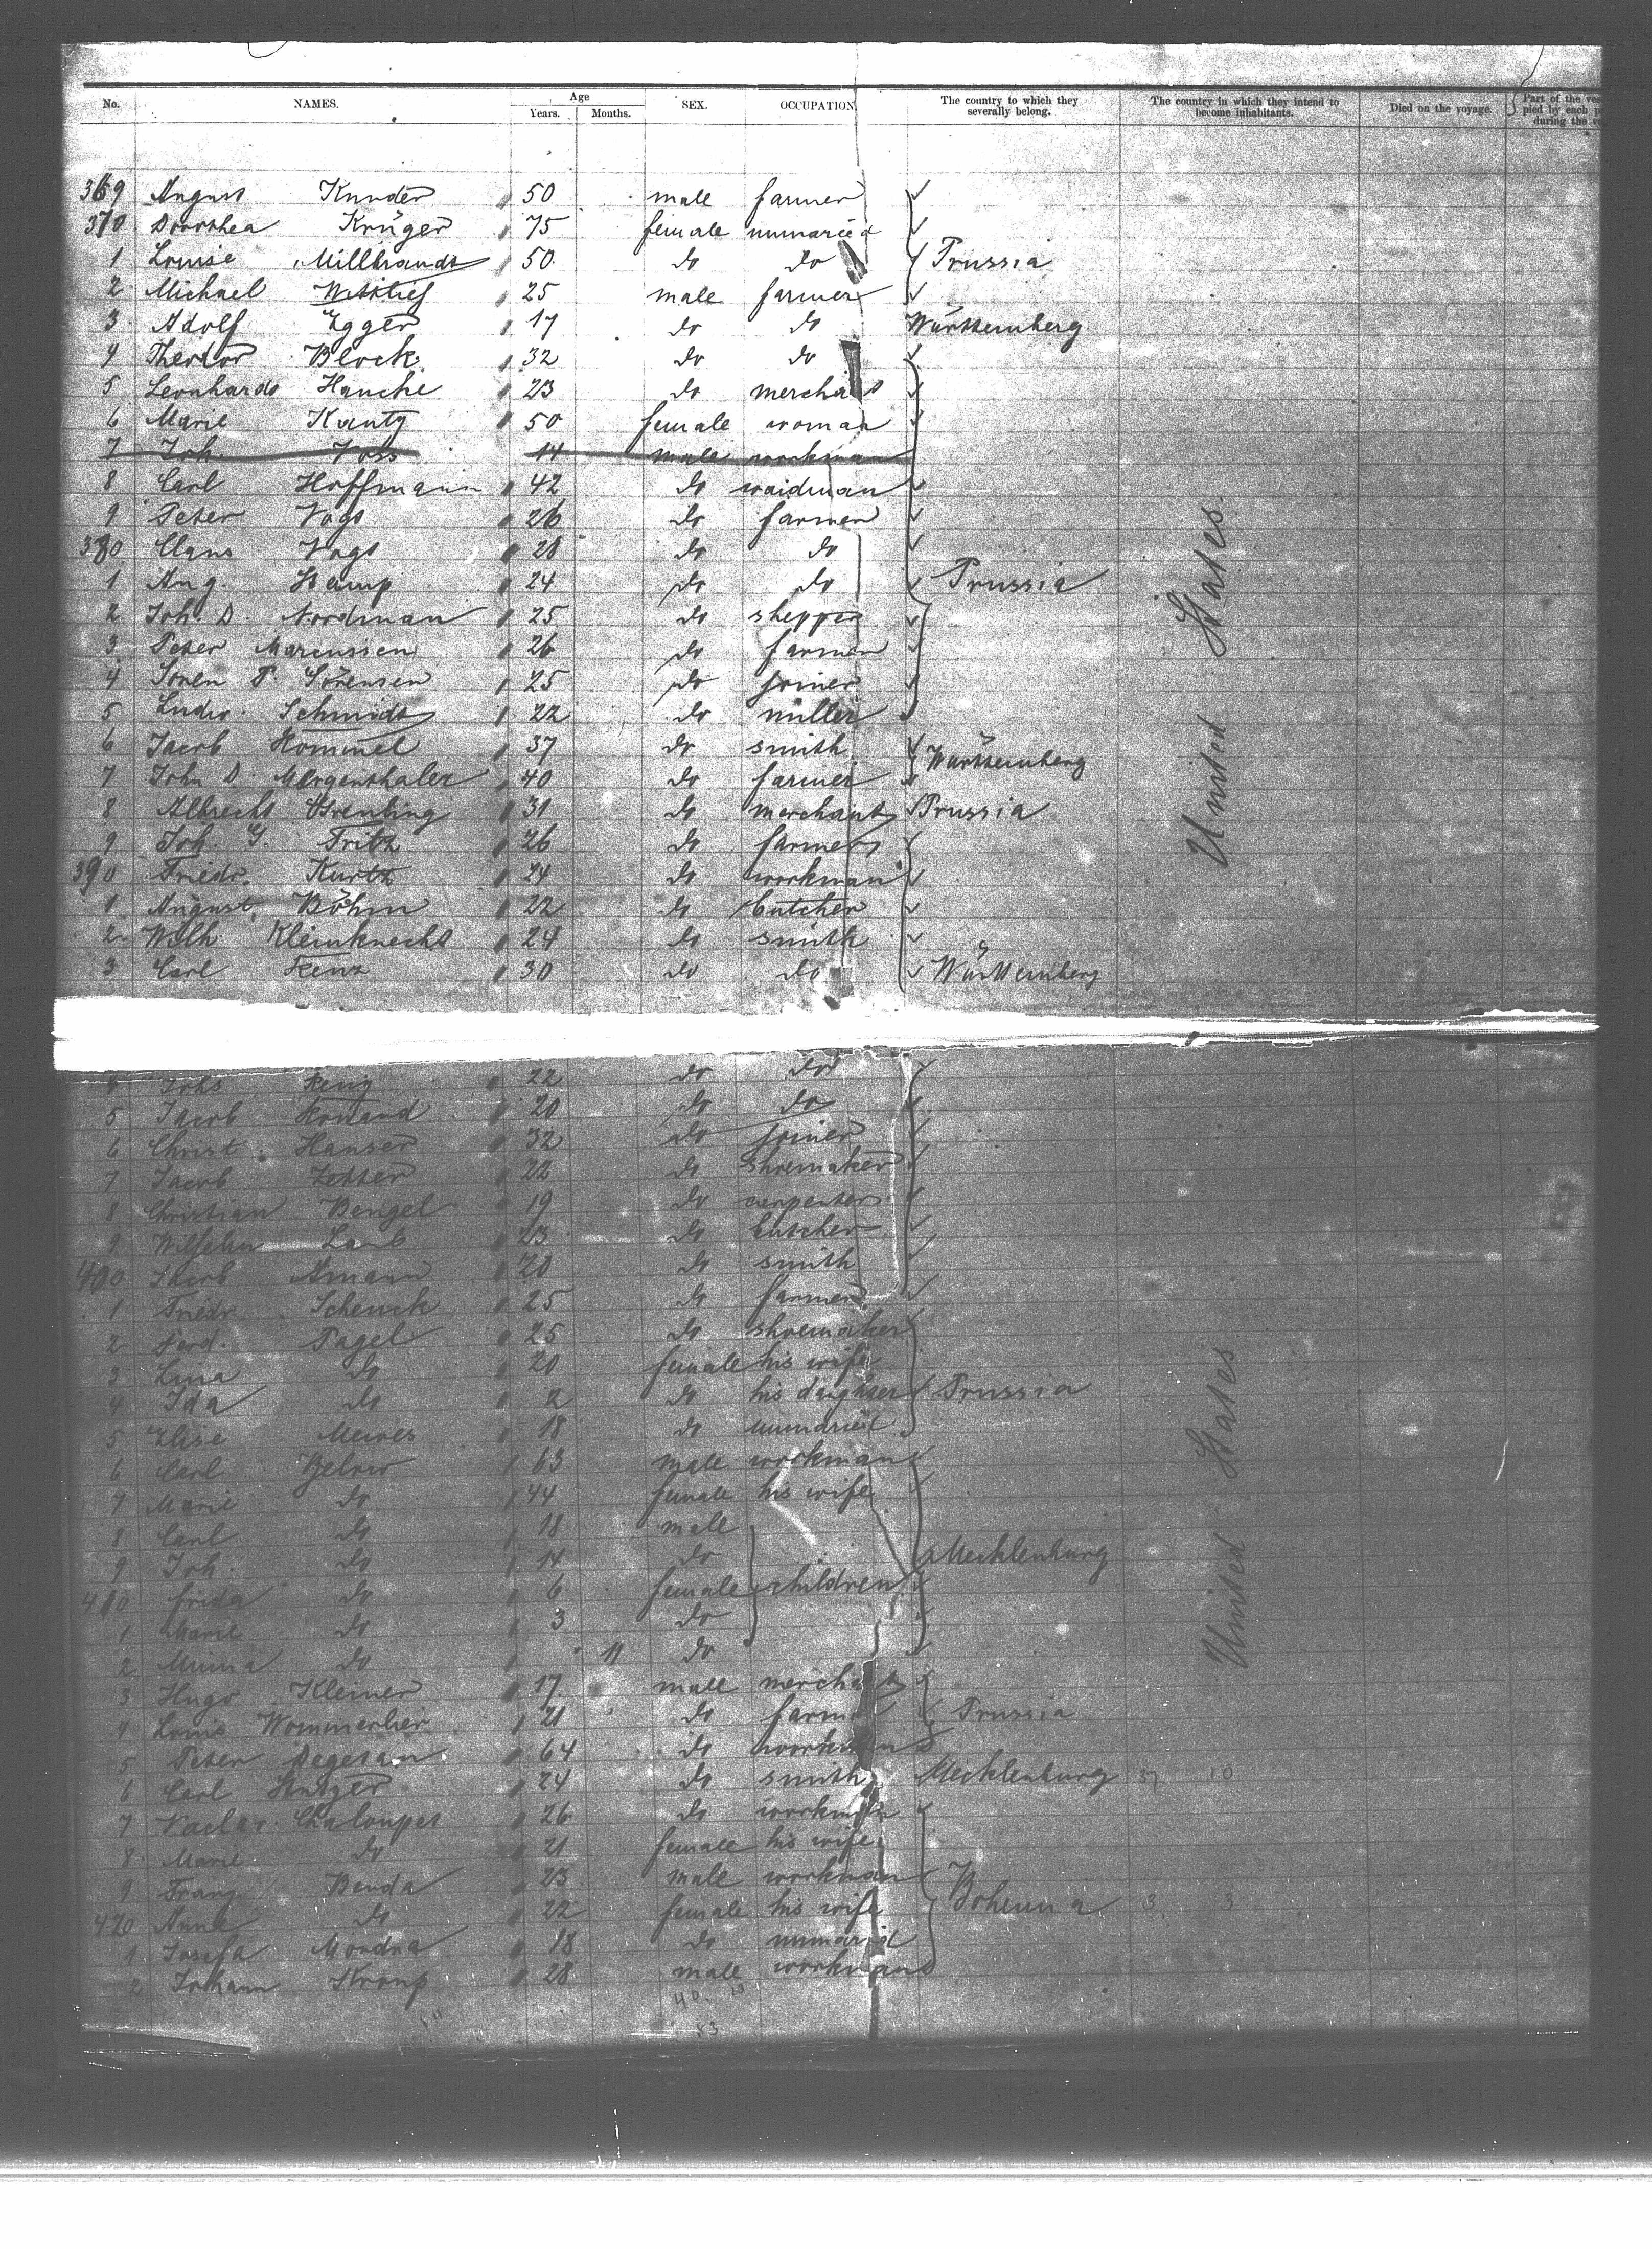 No. NAMES. Age Years. Months. SEX. OCCUPATION. The country to which they severally belong. The country in which they intend to become inhabitants. Died on the voyage. Part of the ves pied by each p during the v
369 August Kunder 50 male farmer
370 Dorothea Krüger 75 female unmaried
1 Louise Millbrandt 50 do do Prussia
2 Michael Wittlief 25 male farmer
3 Adolf Egger 17 do do Württemberg
4 Theodor Block 32 do do
5 Leonhardt Hancke 23 do merchant
6 Marie Kanty 50 female woman
7 Joh. Voss 14 male workman
8 Carl Hoffmann 42 do waidman
9 Peter Vogt 26 do farmer
380 Claus Vogt 28 do do
1 Aug. Kamp 24 do do Prussia
2 Joh. D. Nordman 25 do shepper
3 Peter Marcussen 26 do farmer
4 Sören P. Sörensen 25 do joiner
5 Ludw. Schmidt 22 do miller
6 Jacob Hommel 37 do smith Württemberg
7 John D. Morgenthaler 40 do farmer
8 Albrecht 31 do merchant Prussia
9 Joh. G. Fritz 26 do farmer
390 Friedr. Kurtz 24 do workman
1 August Böhm 22 do butcher
2 Wilh. Kleinknecht 24 do smith
3 Carl Kenz 30 do do Württemberg
United States
4 Johs 22 do do
5 Jacob 20 do do
6 Christ. Hanser 32 do joiner
7 Jacob Zetter 22 do shoemaker
8 Christian Bengel 19 do carpenter
9 Wilhelm Laub 23 do butcher
400 Jacob Amann 20 do smith
1 Friedr. Schenck 25 do farmer
2 Ferd. Pagel 25 do shoemaker
3 Lina do 20 female his wife
4 Ida do 2 do his daughter Prussia
5 Elise Mewes 18 do unmaried
6 Carl Below 63 male workman
7 Marie do 44 female his wife
8 Carl do 18 male
9 Joh. do 14 do Mecklenburg
410 Frida do 6 female children
1 Marie do 3 do
2 Minna do 11 do
3 Hugo Kleiner 17 male merchant
4 Louis 21 do farmer Prussia
5 Peter 64 do workman
6 Carl 24 do smith Mecklenburg 10
7 Vaclav Chaloupes 26 do workman
8 Marie do 21 female his wife
9 Franz Benda 23 male workman
420 Anna do 22 female his wife Bohemia 3 3
1 Josefa Mondra 18 do unmaried
2 Johann Kroup 28 male workman
United States
53